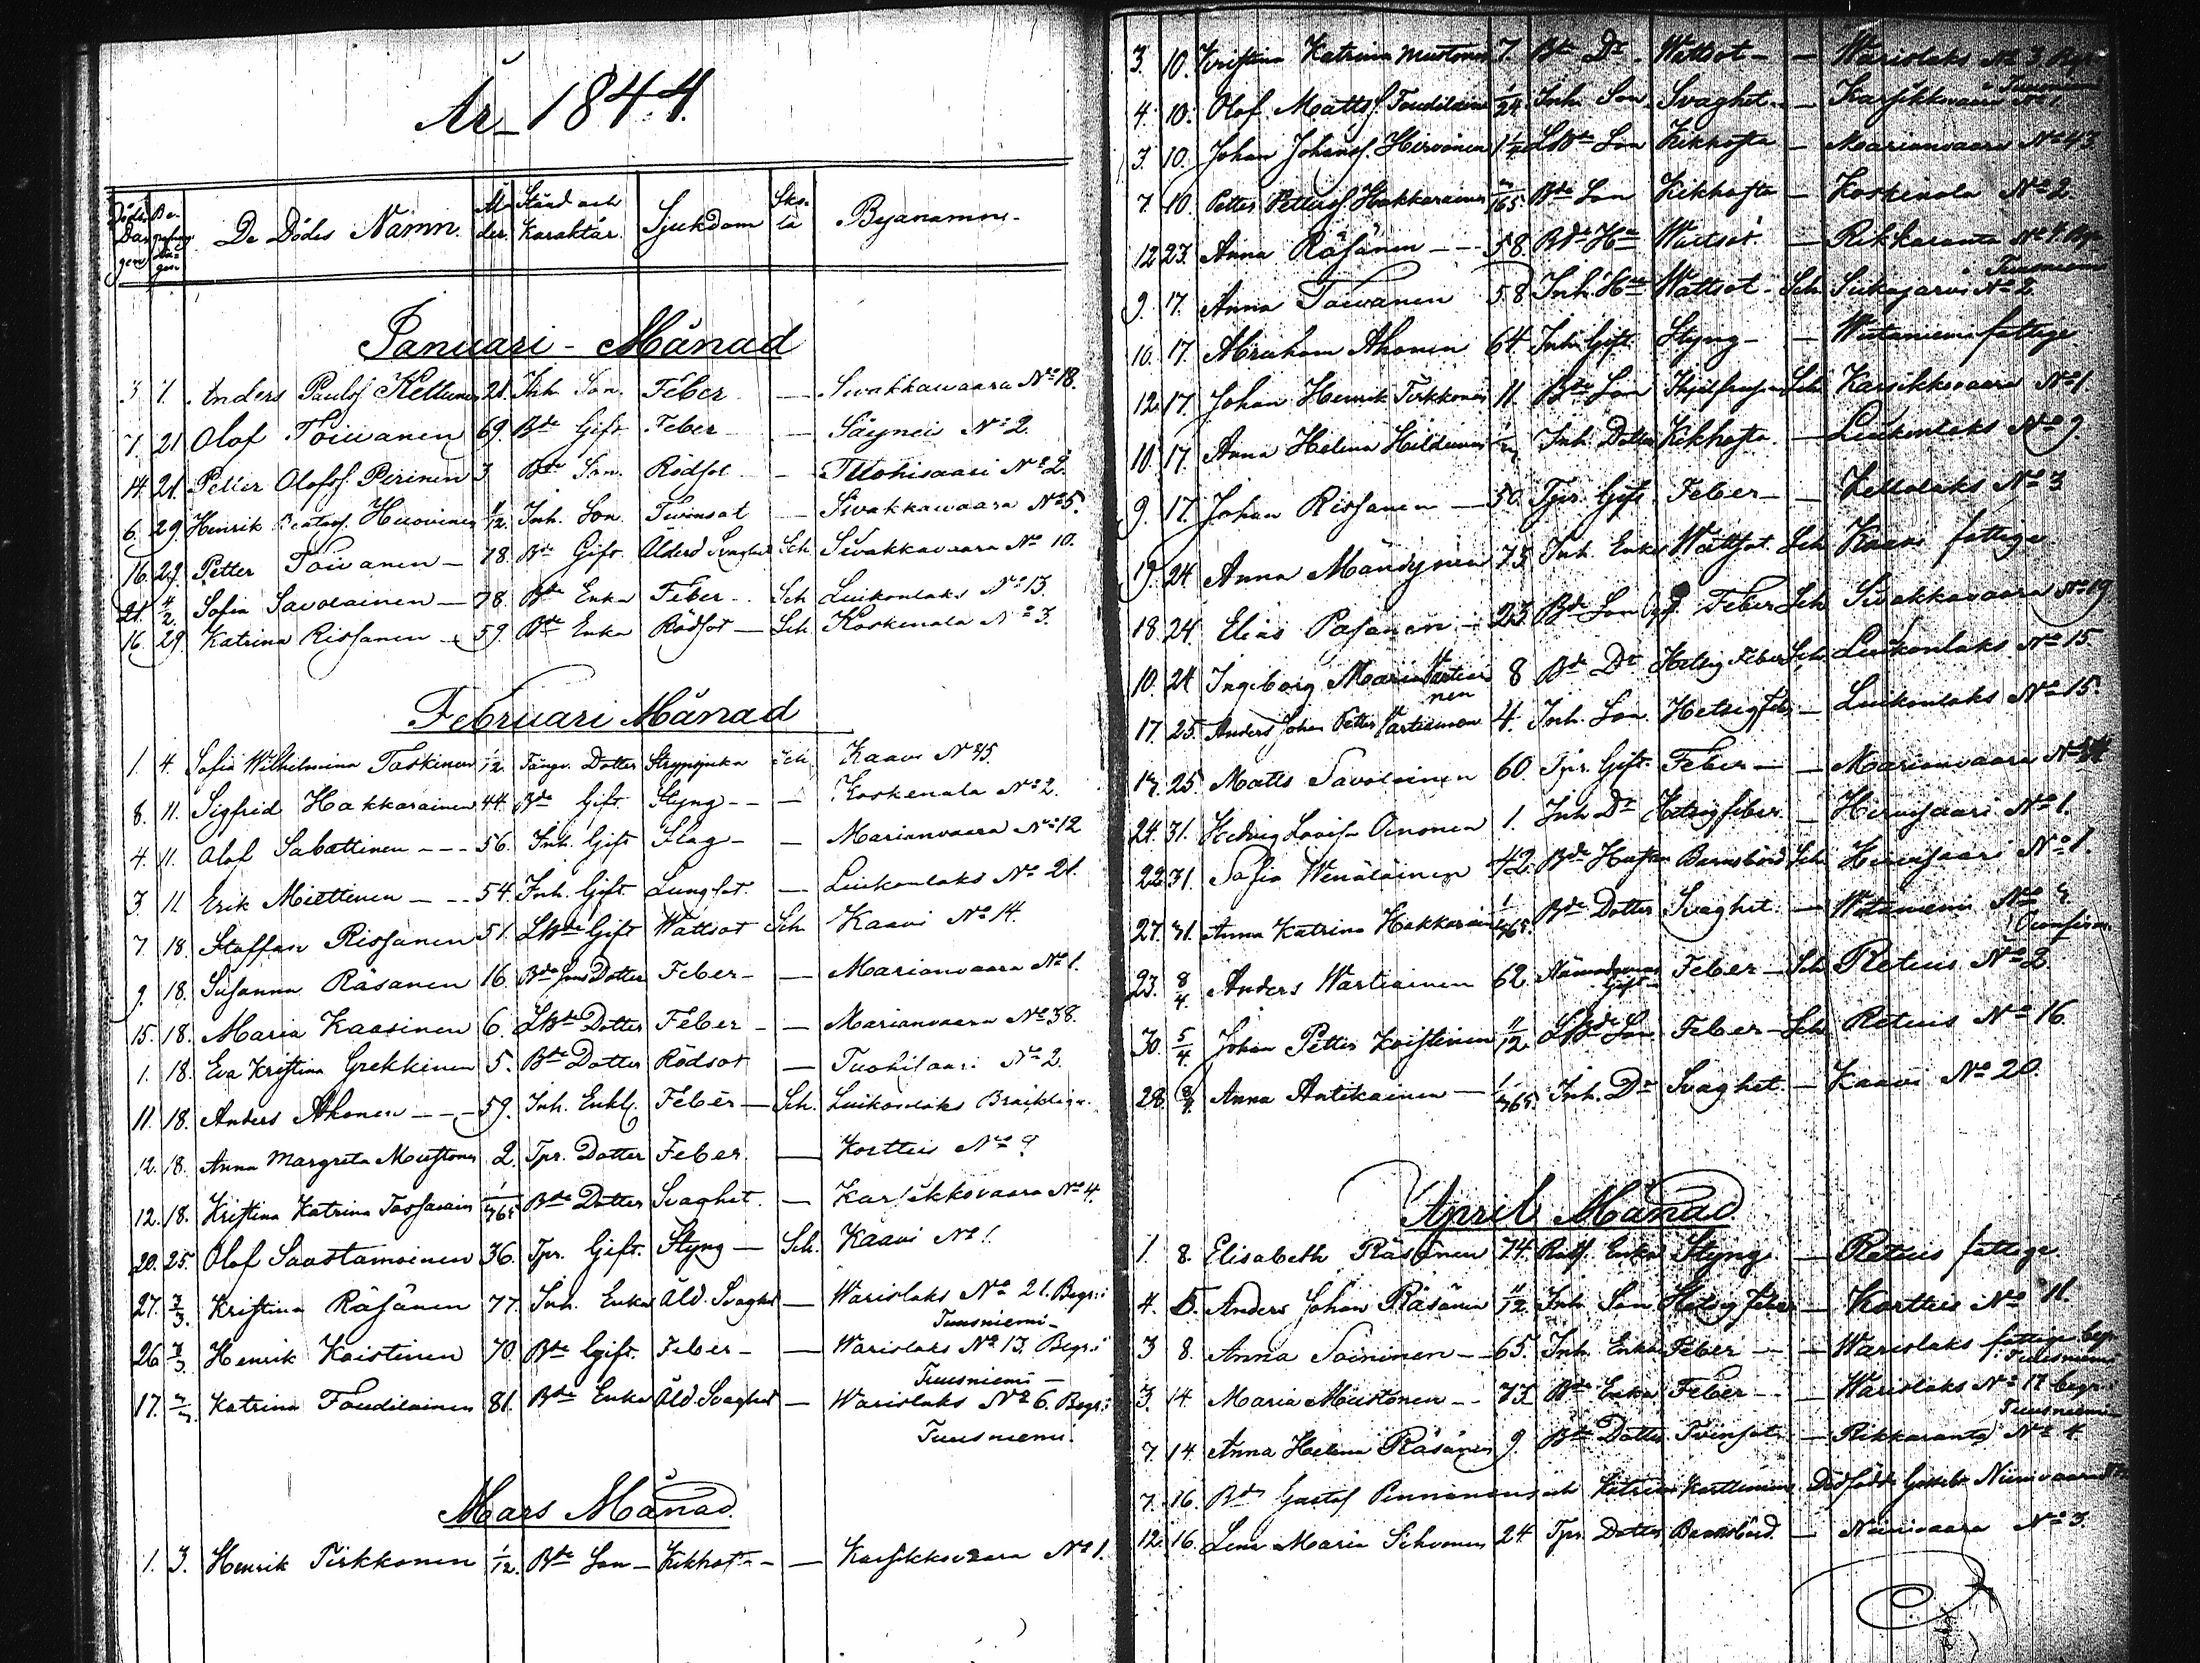 År 1844.
Döds Dagen Begrafnings Dagen De Dödes Namn. Ålder. Stånd och Karaktär. Sjukdom Byanamn.
Januari - Månad
3 7. Anders Paulsf. Kettunen 21. Inh. Son. Feber — Sivakkawaara No 18.
7 21 Olof Toiwanen 69. Bde Gift Feber — Säyneis No 2.
14. 21. Petter Olofsf. Perinen 3 Bde Son. Rödsot — No 2.
6. 29. Henrik 1/12. Inh. Son Twinsot — Sivakkawaara No 5.
16. 29. Petter Toivanen — 78. Bde Gift. Ålderd. Svaghet Sch. Sivakkavaara No 10.
21. 4/2 Sofia Savolainen — 78. Bde Enka Feber — Sch. Luikonlaks No 13.
16. 29. Katrina Rissanen — 59. Bde Enka Rödsot — Sch. Koskenala No 3.
Februari Månad
1. 4. Sofia Wilhelmina Toskinen 1/12 Dotter Strypsjuka Sch. Kaavi No 45.
8. 11. Sigfrid Hakkarainen 44. Bde Gift Styng — — Koskenala No 2.
4. 11. Olof Sabattinen — 56. Inh. Gift Slag — — Marianvaara No 12
3. 11 Erik Miettinen — 54. Inh. Gift Lungsot. — Luikonlaks No 21.
7. 18. Staffan Rissanen 51. LBde Gift Wattsot Sch Kaavi No 14.
9. 18. Susanna Räsänen 16. Bde Sons Dotter Feber — — Marianvaara No 1.
15. 18. Maria Kaasinen 6. LBde Dotter Feber — — Marianvaara No 38.
1. 18. Eva Kristina Grekkinen 5. Bde Dotter Rödsot — Tuohisaari No 2.
11. 18. Anders Ahonen — 59. Inh. Enkl. Feber — Sch. Luikonlaks
12. 18. Anna Margreta Mustonen 2. Tpr. Dotter Feber. — Kortteis No 9
12. 18. Kristina Katrina 1/365 Bde Dotter Svaghet. — Karsikkovaara No 4.
20. 25. Olof Saastamoinen 36. Tpr. Gift. Styng — Sch. Kaavi No 1.
27. 3/3. Kristina Räsänen 77. Inh. Enka Åld. Svaghet — Warislaks No 21. Begr. i
Tuusniemi —
26. 3/3 Henrik Koistinen 70. Bde Gift. Feber — — Warislaks No 13. Begr. i
Tuusniemi —
17. 3/3. Katrina Toudilainen 81. Bde Enka Åld. Svaghet — Warislaks No 6. Begr. i
Tuusniemi.
Mars Månad.
1. 3. Henrik Tirkkonen 1/12. Bde Son — Kikhosta — — Karsikkovaara No 1.
3. 10. Kristina Katrina Mustonen 7. Bde Dr. Wattsot — — Warislaks No 3. Begr. i
Tuusniemi
4. 10. Olof Mattsf. Toudilainen 1/24. Inh. Son. Svaghet — — Karsikkovaara No 1.
3. 10. Johan Johansf. Hirvonen 1 1/4 LBde Son Kikhosta — Marianvaara No 43.
7. 10. Petter Pettersf. Hakkarainen Bde Son Kikhosta — Koskenala No 2.
12. 23. Anna Räsänen — 58. Bde Hu Wattsot. — Rikkaranta No 4 Begr.
Tuusniemi
9. 17. Anna Toivanen 58. Inh. Hu Wattsot — Sch. Siikajärvi No 2
10. 17. Abraham Ahonen 64. Inh. Gift. Styng — — Witaniemi fattige.
12. 17. Johan Henrik Tirkkonen 11. Bde Son Sch. Karsikkovaara No 1.
10. 17. Anna Helena Inh. Dotter Kikhosta. — Luikonlaks No 9.
9. 17. Johan Rissanen — 50. Tpr. Gift. Feber — — No 3
19. 24 Anna 73. Inh. Enka Wattsot. Sch Kaavi fattige
18. 24 Elias Pasanen — 23. Bde Son Feber Sch Sivakkavaara No 19
10. 24 Ingeborg Maria Vartiainen 8 Bde Dr Hetsig Feber Sch Luikonlaks No 15.
17. 25. Anders Johan Petter Vartiainen 4. Inh. Son. Hetsig feb. — Luikonlaks No 15.
17. 25 Matts Savolainen 60. Tpr. Gift. Feber — — Marianvaara No
24. 31. Hedvig Lovisa Oinonen 1. Inh Dr Hetsig feber. — Hirvisaari No 1.
22. 31. Safia Wenäläinen 42. Bde Hustru Barnsbörd Sch Hirvisaari No 1.
27. 31. Anna Katrina Hakkarainen 1/365. Bde Dotter Svaghet. — Witaniemi No
23. 8/4 Anders Wartiainen 62. Nämndeman Gift — Feber — Sch Retuis No 2
30. 5/4 Johan Petter Koistinen 11/12. LBde Son Feber — Sch Retuis No 16.
28. 8/4 Anna Antikainen — 1/365 Inh. Dr Svaghet. — Kaavi No 20.
April Månad
1. 8. Elisabeth Räsänen 74. Enka Styng — Retuis fattige
4. 5. Anders Johan Räsänen 11/12. Inh Son Hetsig feber — Kortteis No 11.
3 8. Anna Soininen — 65. Inh. Enka Feber — — Warislaks fattige begr.
i Tuusniemi
3. 14. Maria Mustonen — 73. Bde Enka Feber — — Warislaks No 17 begr. i
Tuusniemi —
7. 14. Anna Helena Räsänen 9. Bde Dotter Tvinsot. — Rikkaranta No 4
7. 16. Bde Gustaf Pennanens och Katrina Dödfödde Niinivaara
12. 16. Lena Maria Sihvonen 24. Tpr. Dotter Barnsbörd. — Niinivaara No 3.